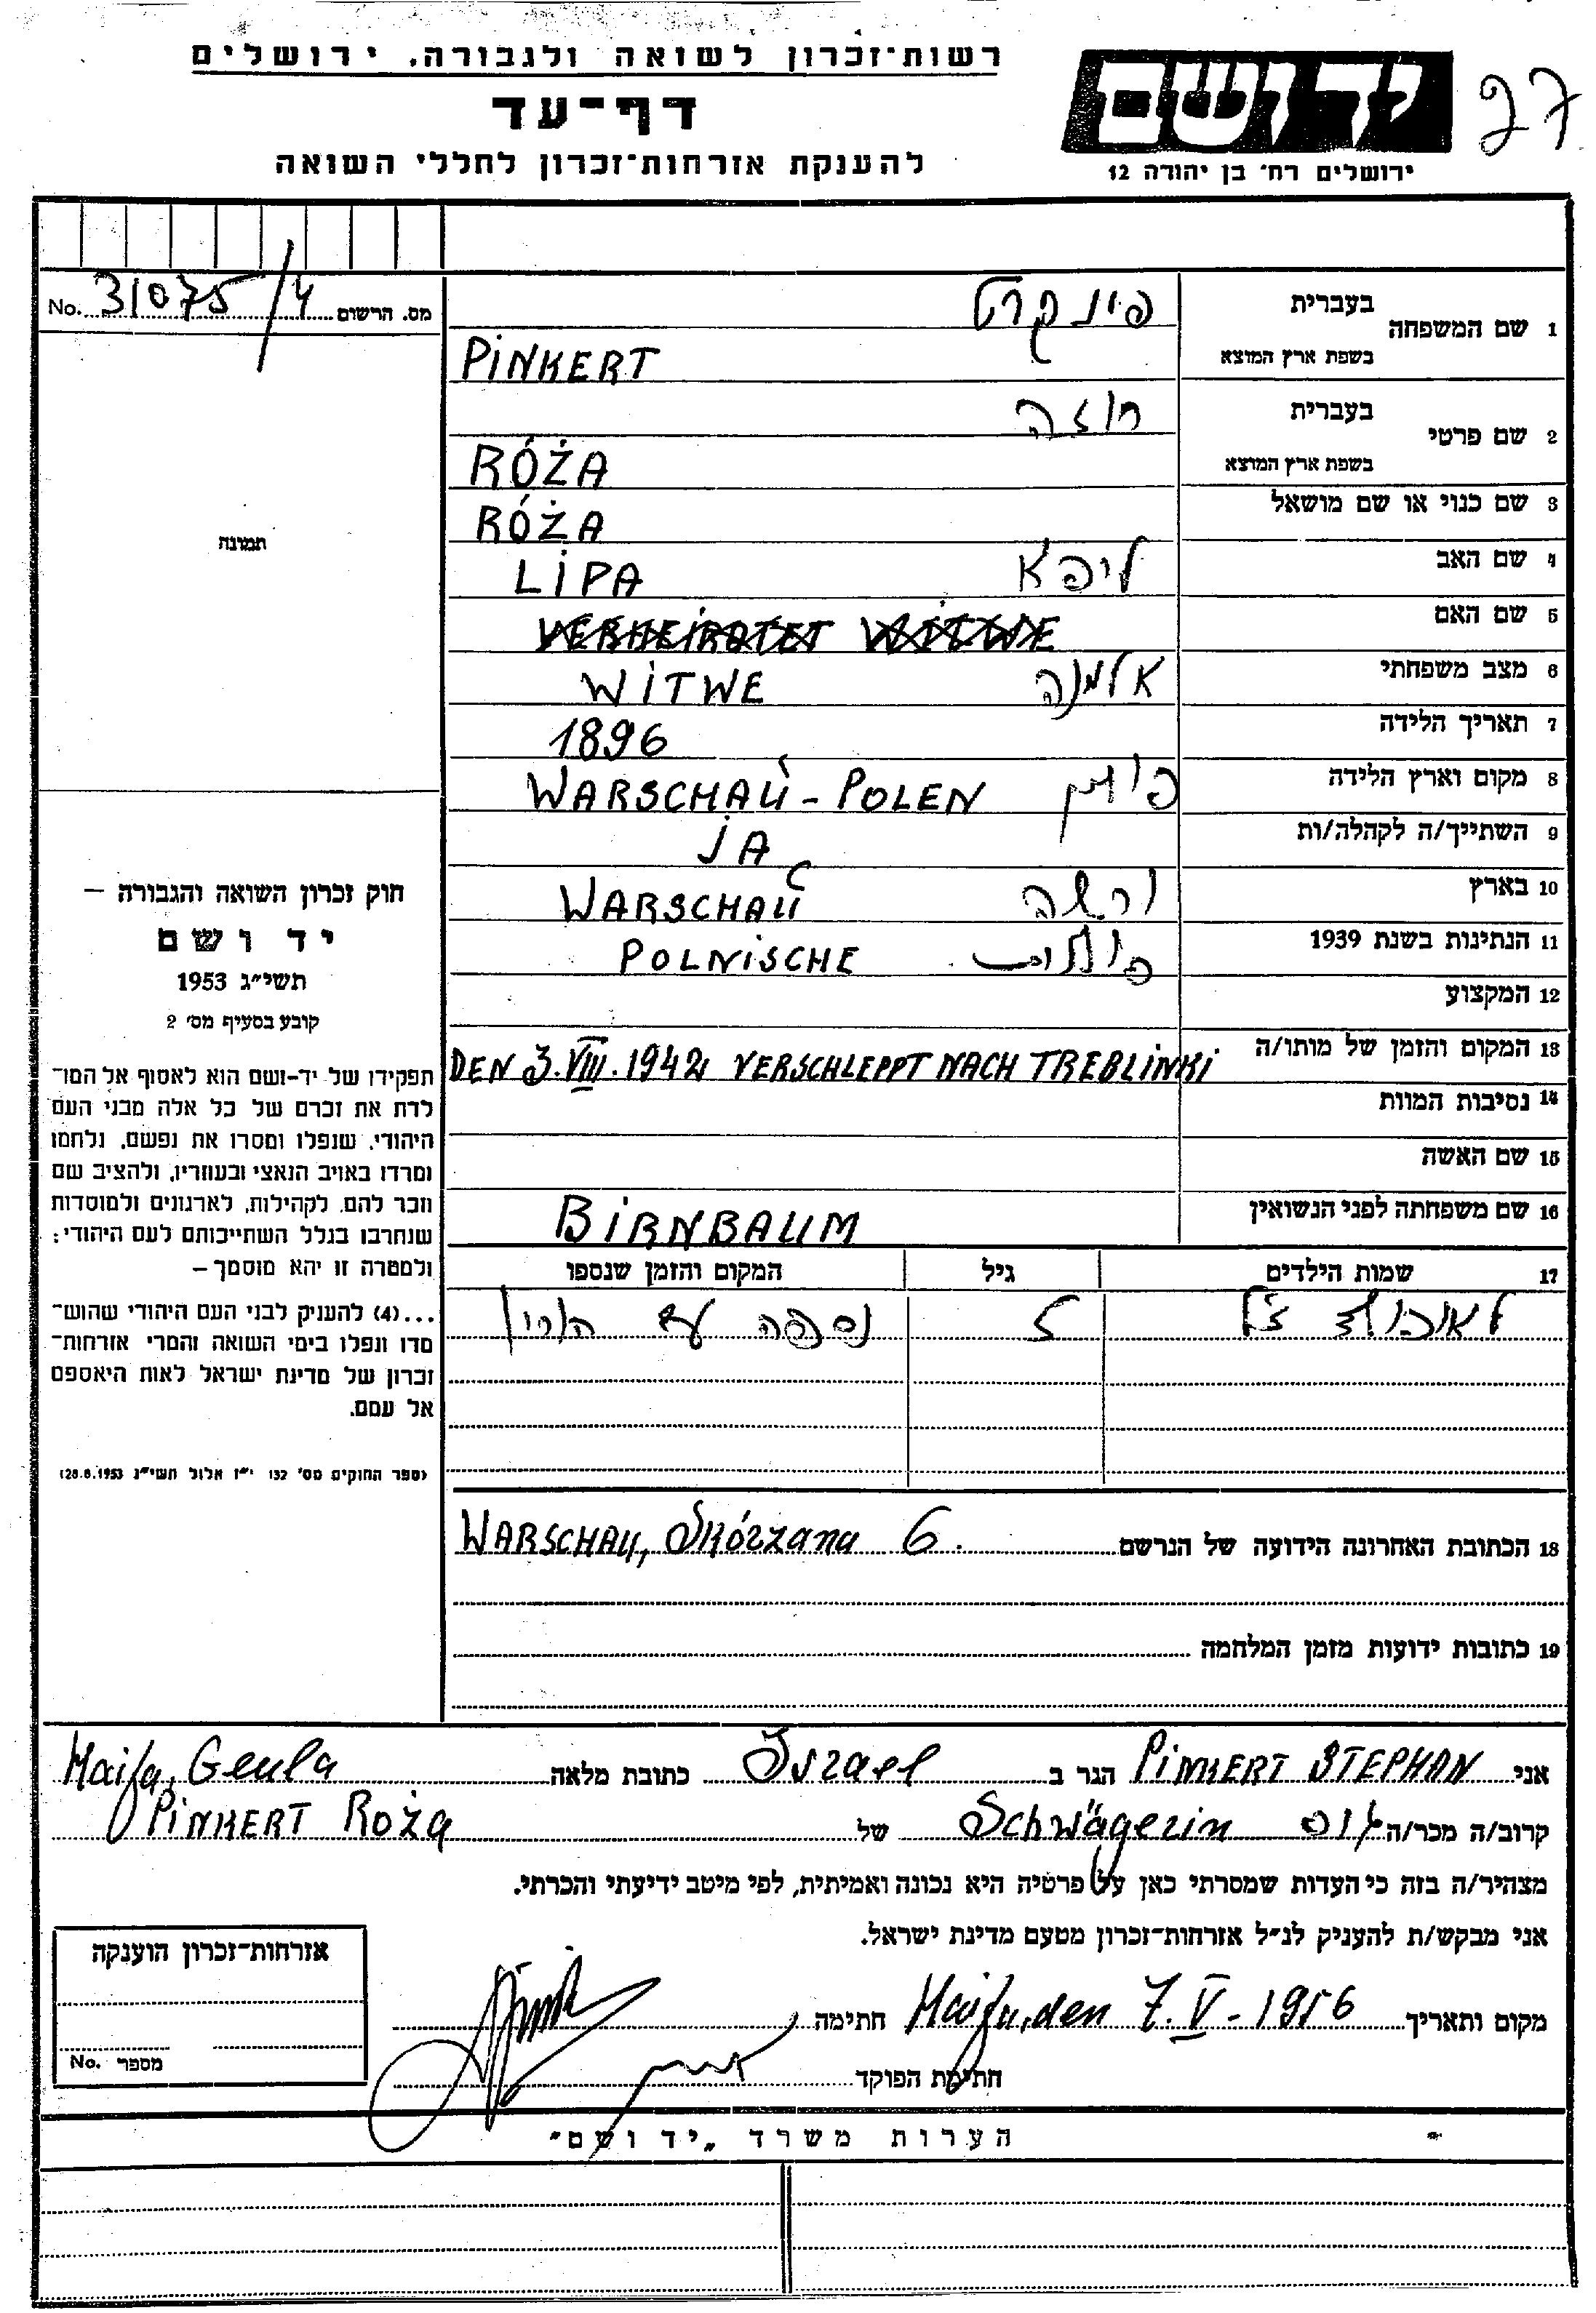 רשות־זכרון לשואה ולגבורה, ירושלים
דף־עד
להענקת אזרחות־זכרון לחללי השואה
יד ושם
ירושלים רח׳ בן יהודה 12
27
מס. הרשום 31075/4 No.
1 שם המשפחה בעברית פינקרט
בשפת ארץ המוצא PINKERT
2 שם פרטי בעברית רוזה
בשפת ארץ המוצא RÓŻA
3 שם כנוי או שם מושאל RÓŻA
4 שם האב ליפא LIPA
5 שם האם VERHEIRATET WITWE
6 מצב משפחתי אלמנה WITWE
7 תאריך הלידה 1896
8 מקום וארץ הלידה פולין WARSCHAU - POLEN
9 השתייך/ה לקהלה/ות JA
10 בארץ ורשה WARSCHAU
11 הנתינות בשנת 1939 פולנית POLNISCHE
12 המקצוע
13 המקום והזמן של מותו/ה DEN 3.VIII.1942 VERSCHLEPPT NACH TREBLINKI
14 נסיבות המוות
15 שם האשה
16 שם משפחתה לפני הנשואין BIRNBAUM
17 שמות הילדים גיל המקום והזמן שנספו
לאופולד ז״ל נספה עם הוריו
18 הכתובת האחרונה הידועה של הנרשם WARSCHAU, Skórzana 6.
19 כתובות ידועות מזמן המלחמה
תמונה
חוק זכרון השואה והגבורה –
יד ושם
תשי״ג 1953
קובע בסעיף מס׳ 2
תפקידו של יד-ושם הוא לאסוף אל המו־
לדת את זכרם של כל אלה מבני העם
היהודי, שנפלו ומסרו את נפשם, נלחמו
ומרדו באויב הנאצי ובעוזריו, ולהציב שם
וזכר להם, לקהילות, לארגונים ולמוסדות
שנחרבו בגלל השתייכותם לעם היהודי;
ולמטרה זו יהא מוסמך –
...(4) להעניק לבני העם היהודי שהוש־
מדו ונפלו בימי השואה והמרי אזרחות־
זכרון של מדינת ישראל לאות היאספם
אל עמם.
(ספר החוקים מס׳ 132 י״ז אלול תשי״ג 28.8.1953)
אני PINKERT STEPHAN הגר ב Iszael כתובת מלאה Haifa, Geula
קרוב/ה מכר/ה גיס Schwägerin של PINKERT ROŻA
מצהיר/ה בזה כי העדות שמסרתי כאן על פרטיה היא נכונה ואמיתית, לפי מיטב ידיעתי והכרתי.
אני מבקש/ת להעניק לנ״ל אזרחות־זכרון מטעם מדינת ישראל.
מקום ותאריך Haifa, den 7.V-1956 חתימה
חתימת הפוקד
אזרחות־זכרון הוענקה
מספר No.
הערות משרד „יד ושם״